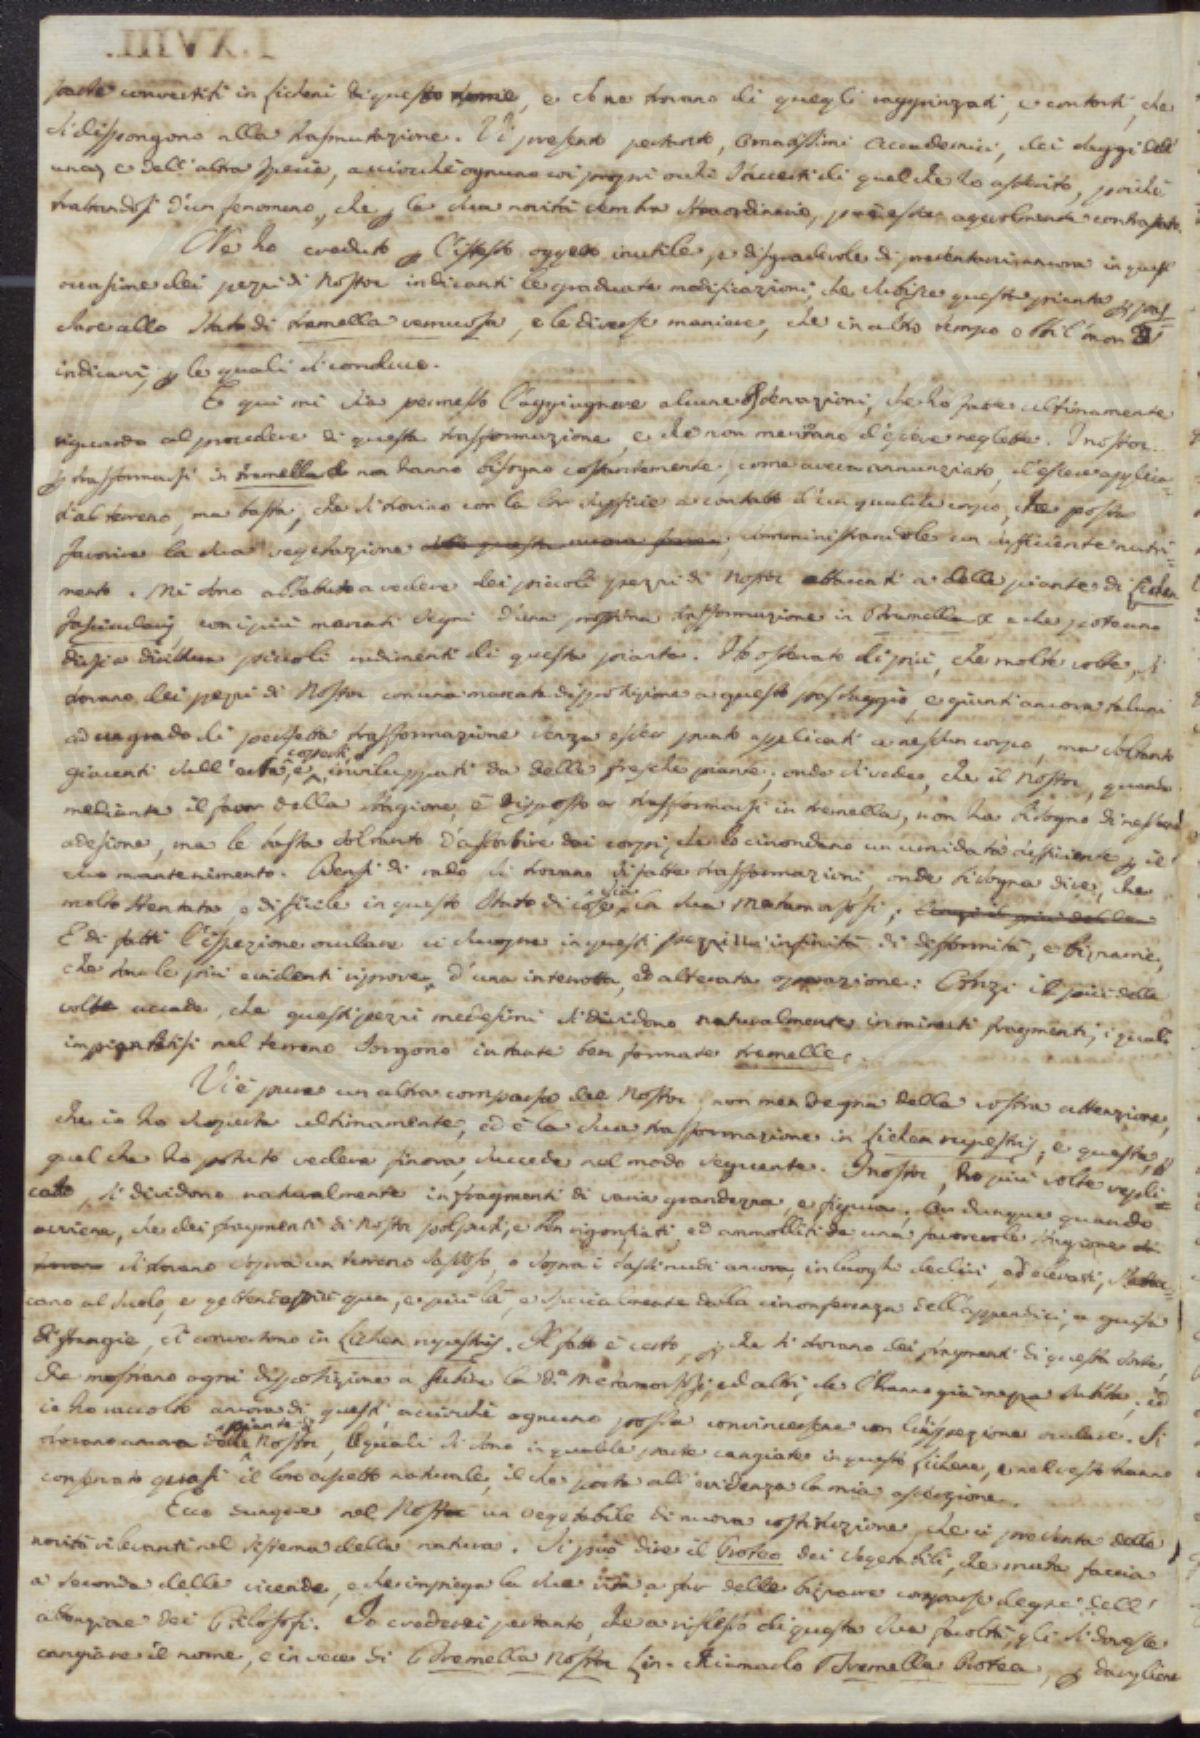 parte convertiti in licheni di questo nome, e che ne trovano di quegli raggrinzati, e contorti, che
si dispongono alla trasmutazione. Vi presento pertanto, Ornatissimi Accademici, dei saggi dell'
una, e dell'altra specie, acciocchè ognuno coi proprj occhi s'accerti di quel che ho asserito, poichè
trattandosi d'un fenomeno, che p la sua novità sembra straordinario, può esser agevolmente contrastato.
Nè ho creduto p l'istesso oggetto inutile, e disgradevole di presentarvi ancora in quest'
occasione dei pezzi di Nostoc indicanti le graduate modificazioni, che subisce questa pianta p pas=
sare allo stato di tremella verrucosa, e le diverse maniere, che in altro tempo
indicai, p le quali si conduce.
E qui mi sia permesso l'aggiugnere alcune osservazioni, che ho fatte ultimamente
riguardo al procedere di questa trasformazione, e che non meritano d'essere neglette. I nostoc
p trasformarsi in tremella non hanno bisogno costantemente, come aveva annunziato, d'essere applica=
ti al terreno, ma basta, che si trovino con la lor superficie a contatto d'un qualche corpo, che possa
favorire la sua vegetazione, somministrandole un sufficiente nutri=
mento. Mi sono abbattuto a vedere dei piccoli pezzi di Nostoc attaccati a delle piante di Lichen
fascicularis con i più marcati segni d'una prossima trasformazione in Tremella e che poteano
dirsi piccoli rudimenti di questa pianta. Ho osservato di più, che molte volte si
trovano dei pezzi di Nostoc con una marcata disposizione a questo passaggio, e giunti ancora taluni
ad un grado di perfetta trasformazione senza esser punto applicati a nessun corpo, ma soltanto
giacenti sull'erba, e coperti, inviluppati da delle fresche piante; onde si vede, che il Nostoc, quando
mediante il favor della stagione, è disposto a trasformarsi in tremella, non ha bisogno di nessuna
adesione, ma le basta soltanto d'assorbire dai corpi, che lo circondano un umidità sufficiente p il
suo mantenimento. Bensì di rado si trovano sì fatte trasformazioni, onde bisogna dire, che
molto stentata, e difficile in questo stato di cose sia la sua metamorfosi;
E di fatti l'ispezione oculare ci scuopre in questi pezzi un'infinità di difformità, e bizzarrie,
che sono le più evidenti riprove d'una interrotta, ed alterata operazione: Anzi il più delle
volte accade, che questi pezzi medesimi si dividono naturalmente in minuti fragmenti, i quali
impiantatisi nel terreno sorgono in tante ben formate tremelle.
Vi è pure un altra comparsa del Nostoc, non men degna della vostra attenzione,
che io ho scoperta ultimamente, ed è la sua trasformazione in Lichen rupestris, e questa, p
quel che ho potuto vedere finora, succede nel modo seguente. I nostoc, ho più volte repli=
cato, si dividono naturalmente in fragmenti di varia grandezza, e figura. Or dunque quando
avviene, che dei fragmenti di Nostoc polputi, e ben rigonfiati, ed ammolliti da una favorevole stagione
si trovano sopra un terreno sassoso, o sopra i sassi nudi ancora, in luoghi declivi, ed elevati, s'attac=
cano al suolo, e gettando più qua, e più là, e specialmente dalla circonferenza dell'appendici, a guisa
di frangie, si convertono in Lichen rupestris. Il fatto è certo, p che si trovano dei fragmenti di questa sorte,
che mostrano ogni disposizione a subire la d.ª metamorfosi, ed altri, che l'hanno già mezza subita; ed
io ho raccolto ancora di questi, acciocchè ognuno possa convincersene con l'ispezione oculare. Si
trovano ancora delle piante di Nostoc, le quali si sono in qualche parte cangiate in questo Lichene, e nel resto hanno
conservato quasi il loro aspetto naturale, il che porta all'evidenza la mia asserzione.
Ecco dunque nel Nostoc un vegetabile di nuova costituzione, che ci presenta delle
novità rilevanti nel sistema della natura. Si può dire il Proteo dei Vegetabili, che muta faccia
a seconda delle vicende, e che impiega la sua vita a far delle bizzarre comparse degne dell'
attenzione dei Filosofi. Io crederei pertanto, che a riflesso di questa sua facoltà, gli si dovesse
cangiare il nome, e in vece di Tremella Nostoc Lin. chiamarlo Tremella Protea, p